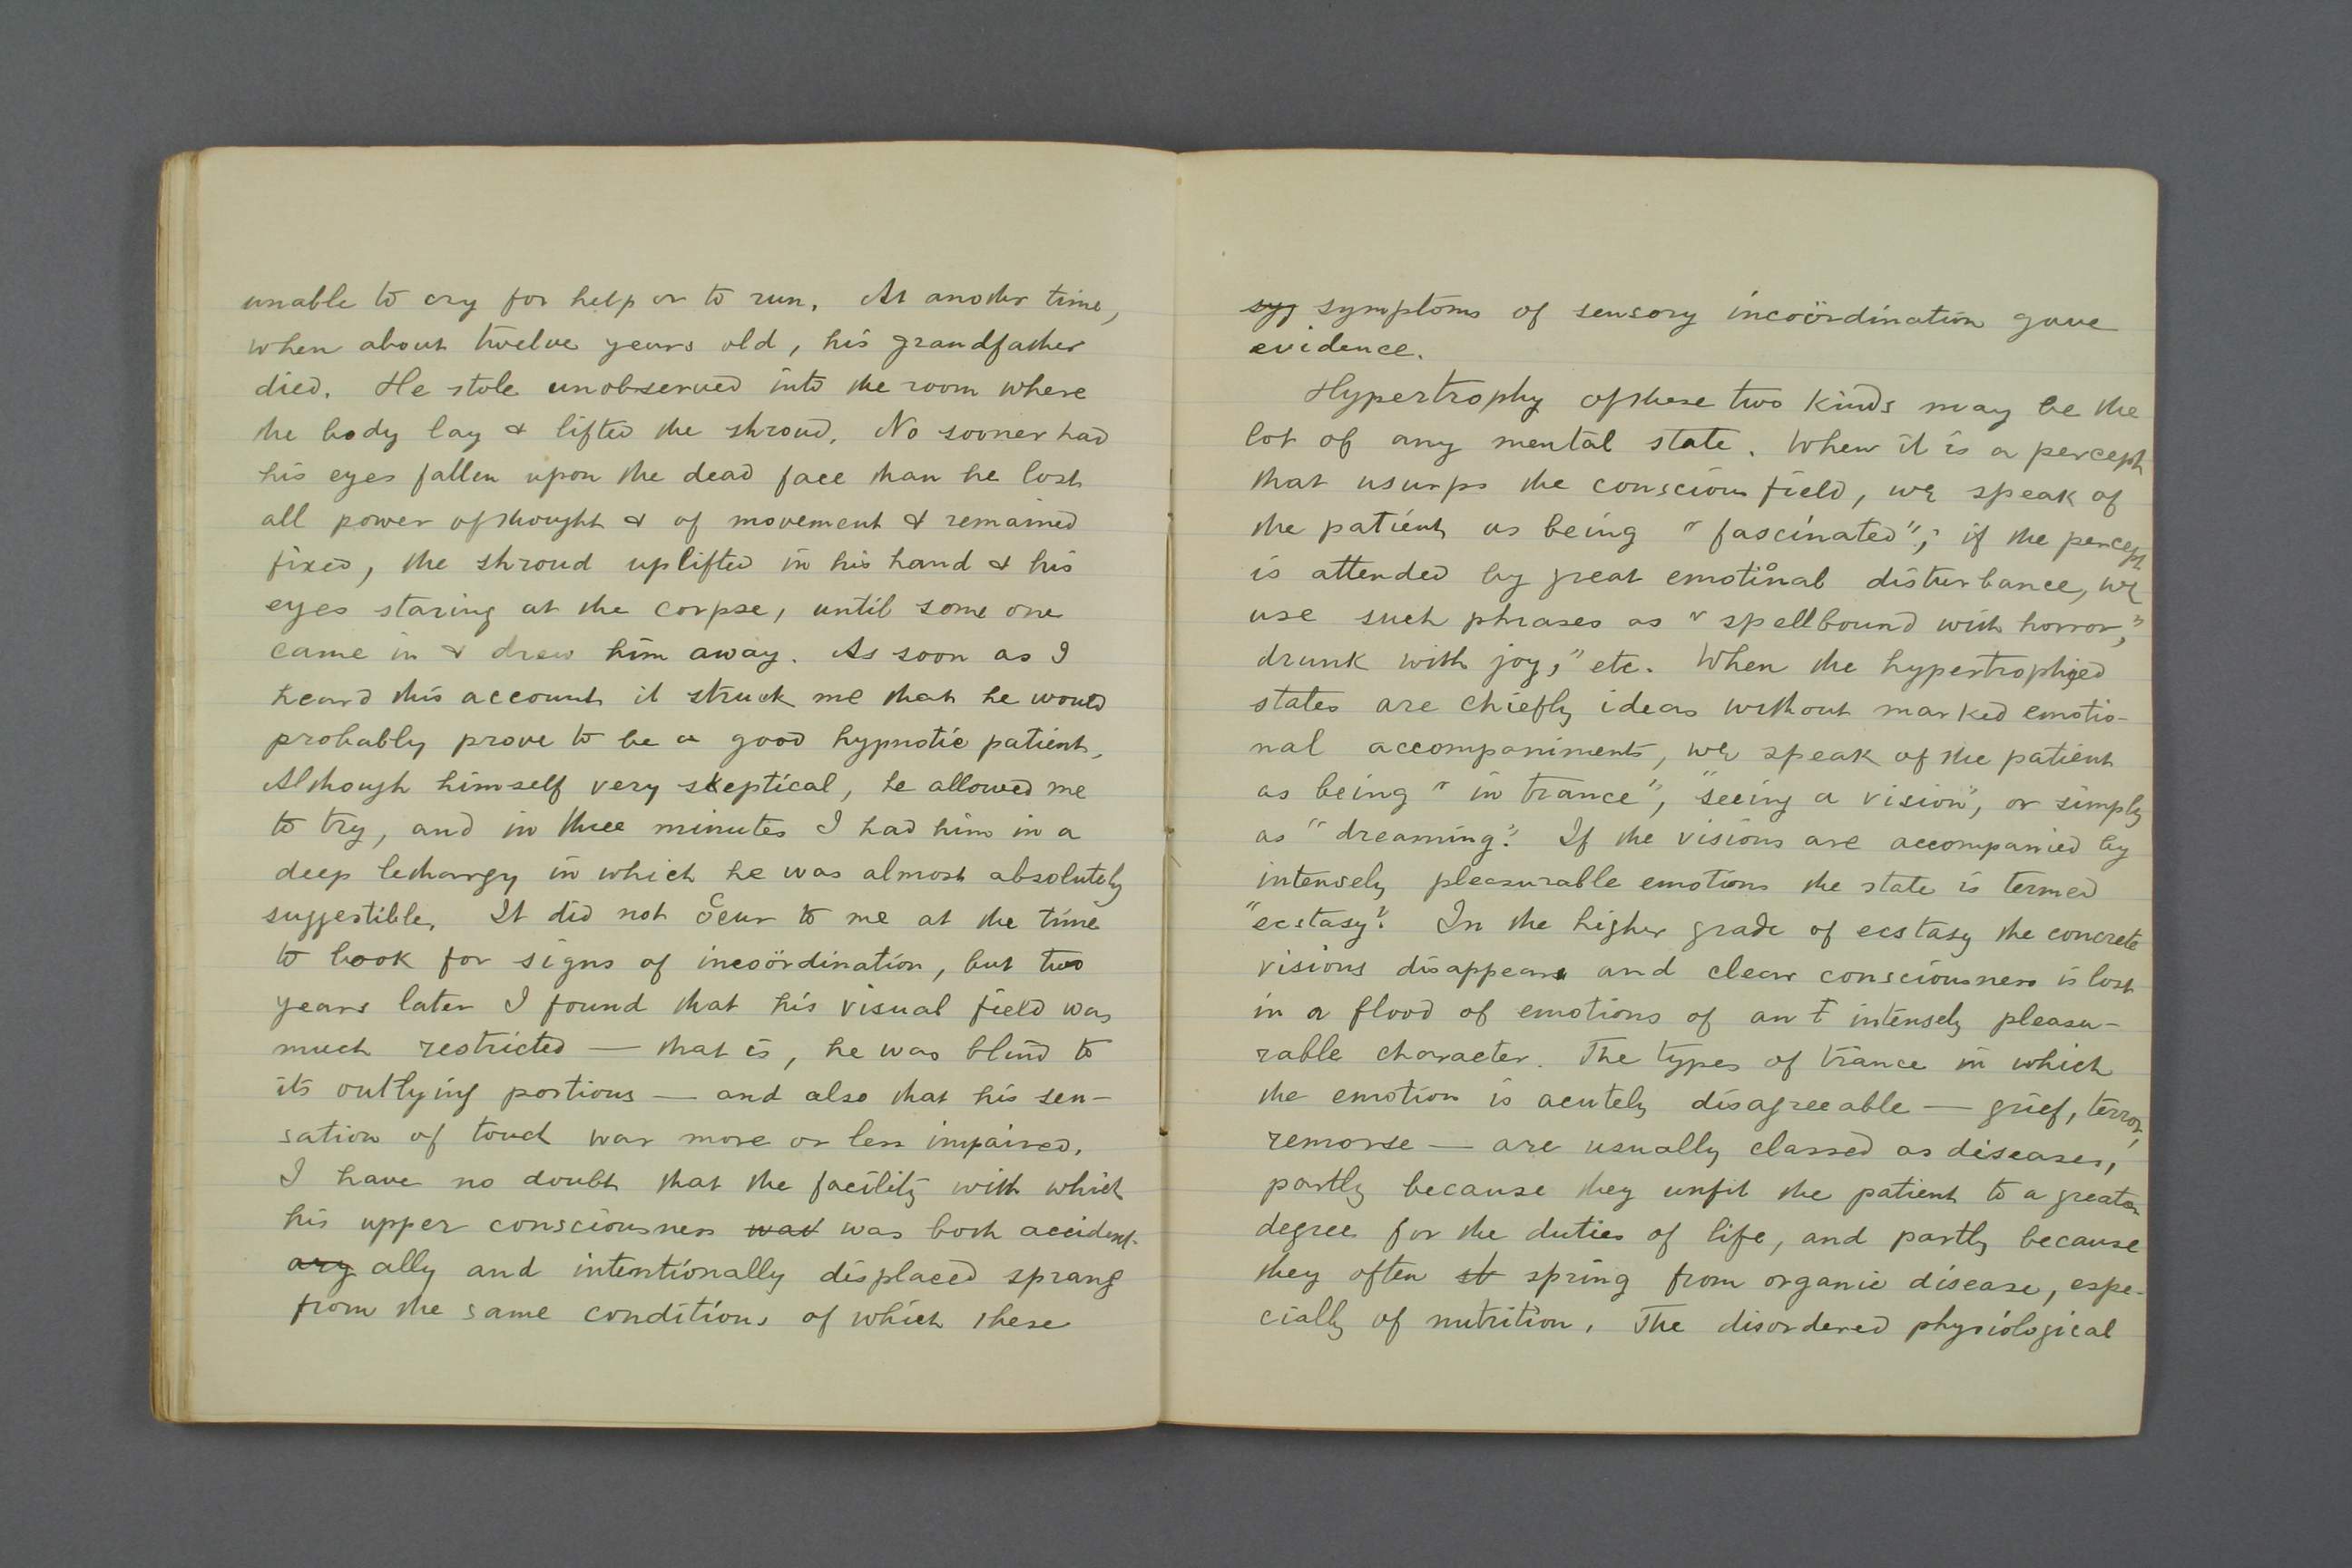 unable to cry for help or to run. At another time,
when about twelve years old, his grandfather
died. He stole unobserved into the room where
the body lay & lifted the shroud. No sooner had
his eyes fallen upon the dead face than he lost
all power of thought & of movement & remained
fixed, the shroud uplifted in his hand & his
eyes staring at the corpse, until some one
came in & drew him away. As soon as I
heard this account it struck me that he would
probably prove to be a good hypnotic patient.
Although himself very skeptical, he allowed me
to try, and in three minutes I had him in a
deep lethargy in which he was almost absolutely
suggestible. It did not occur to me at the time
to look for signs of incoördination, but two
years later I found that his visual field was
much restricted — that is, he was blind to
its outlying portions — and also that his sen-
sation of touch was more or less impaired.
I have no doubt that the facility with which
his upper consciousness was was both accident-
ary ally and intentionally displaced sprang
from the same conditions of which these
syg symptoms of sensory incoördination gave
evidence.
Hypertrophy of these two kinds may be the
lot of any mental state. When it is a percept
that usurps the conscious field, we speak of
the patient as being "fascinated"; if the percept
is attended by great emotional disturbance, we
use such phrases as "spellbound with horror,"
drunk with joy," etc. When the hypertrophied
states are chiefly ideas without marked emotio-
nal accompaniments, we speak of the patient
as being "in trance", "seeing a vision", or simply
as "dreaming". If the visions are accompanied by
intensely pleasurable emotions the state is termed
"ecstasy". In the higher grade of ecstasy the concrete
visions disappear and clear consciousness is lost
in a flood of emotions of an t intensely pleasu-
rable character. The types of trance in which
the emotion is acutely disagreeable — grief, terror,
remorse — are usually classed as diseases,
partly because they unfit the patient to a greater
degree for the duties of life, and partly because
they often st spring from organic disease, espe-
cially of nutrition. The disordered physiological